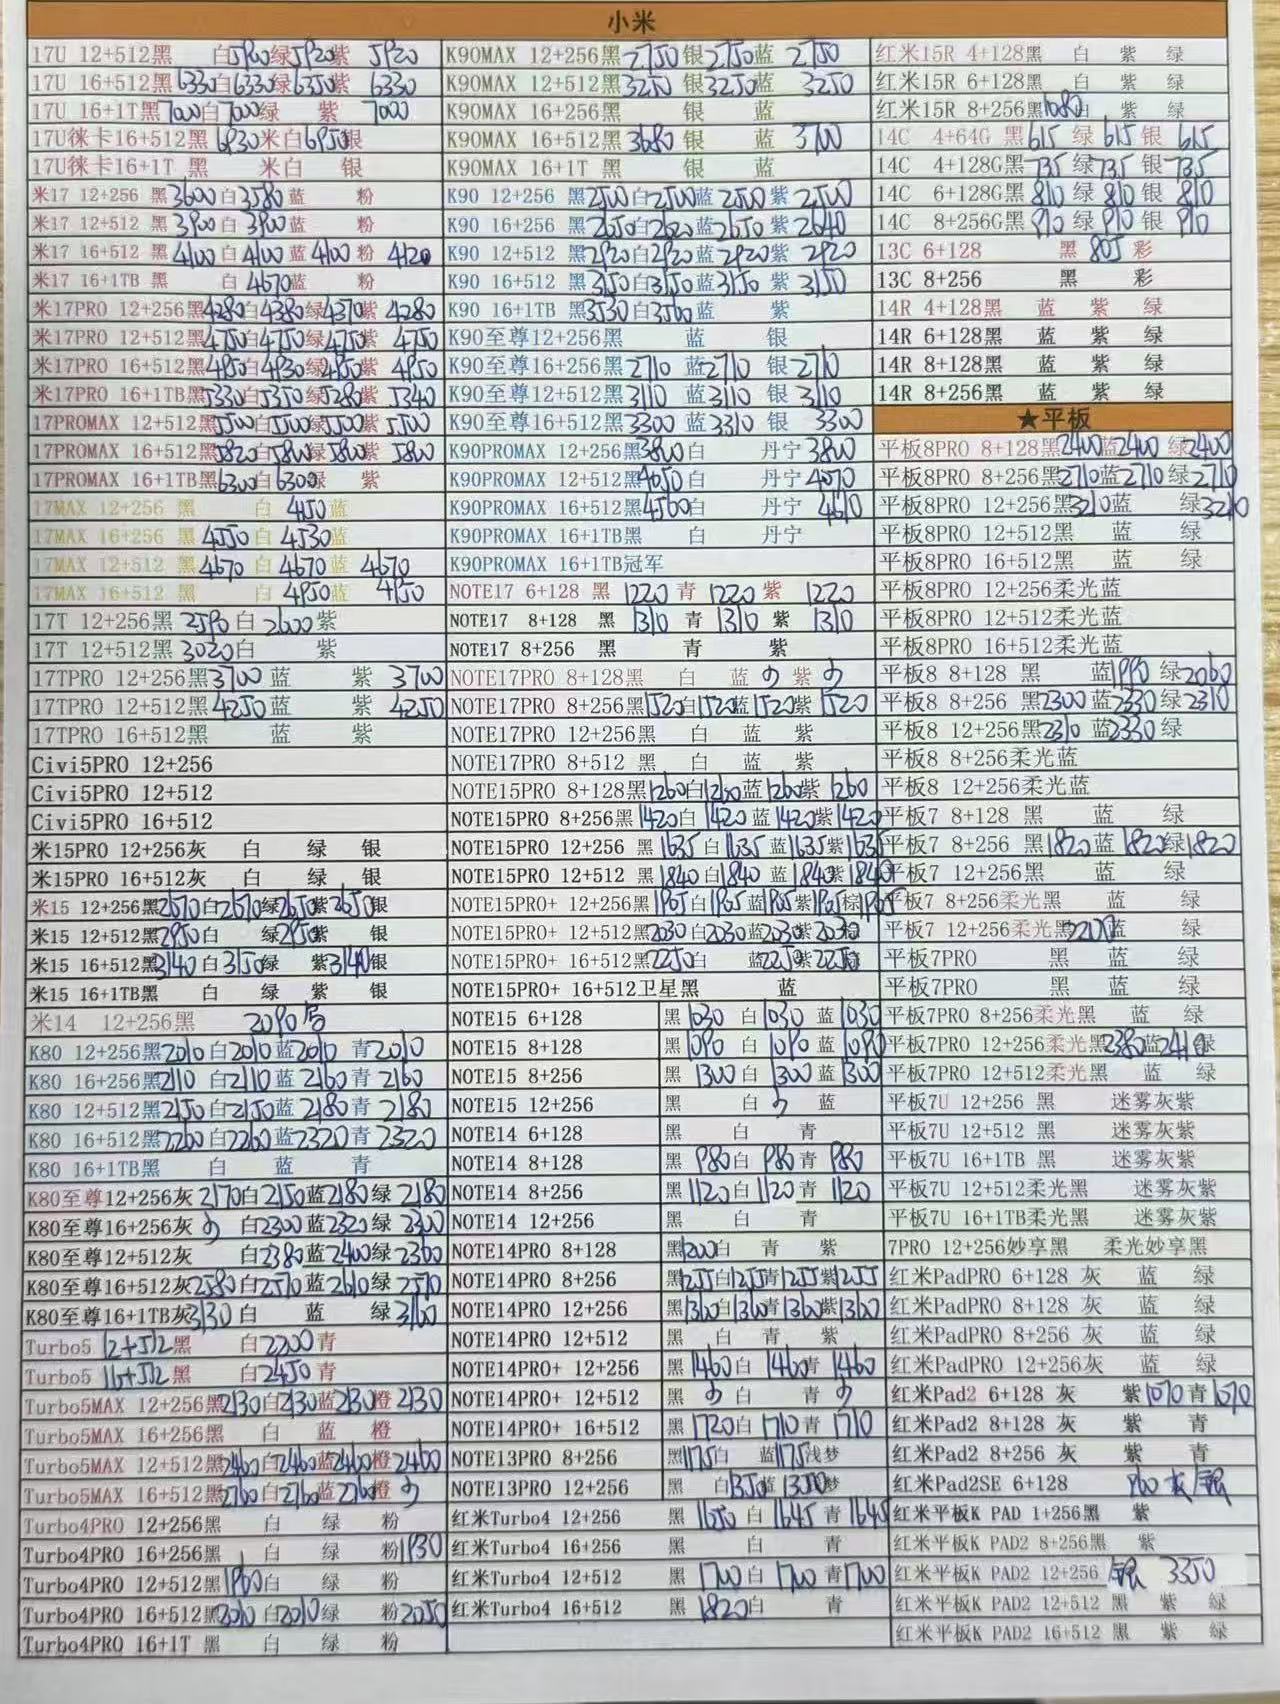 小米
17U 12+512黑 白5920绿5920紫 5920
17U 16+512黑6330白6330绿6350紫 6330
17U 16+1T黑7000白7000绿 紫 7000
17U徕卡16+512黑 6930米白6950银
17U徕卡16+1T 黑 米白 银
米17 12+256 黑3600白3580蓝 粉
米17 12+512 黑3900白3900蓝 粉
米17 16+512 黑4100白4100蓝4100粉 4120
米17 16+1TB 黑 白4670蓝 粉
米17PRO 12+256黑4280白4380绿4370紫 4280
米17PRO 12+512黑4750白4750绿4750紫 4750
米17PRO 16+512黑4950白4930绿4950紫 4950
米17PRO 16+1TB黑5330白5350绿5280紫 5340
17PROMAX 12+512黑5500白5500绿5500紫 5500
17PROMAX 16+512黑5820白5800绿5800紫 5800
17PROMAX 16+1TB黑6300白6300绿 紫
17MAX 12+256 黑 白 4150蓝
17MAX 16+256 黑 4550白 4530蓝
17MAX 12+512 黑 4670白 4670蓝 4670
17MAX 16+512 黑 白 4950蓝 4950
17T 12+256黑 2590白 2600紫
17T 12+512黑 3020白 紫
17TPRO 12+256黑3700蓝 紫 3700
17TPRO 12+512黑4250蓝 紫 4250
17TPRO 16+512黑 蓝 紫
Civi5PRO 12+256
Civi5PRO 12+512
Civi5PRO 16+512
米15PRO 12+256灰 白 绿 银
米15PRO 16+512灰 白 绿 银
米15 12+256黑2670白2670绿2650紫2650银
米15 12+512黑2950白 绿2950紫 银
米15 16+512黑3140白3150绿 紫3140银
米15 16+1TB黑 白 绿 紫 银
米14 12+256黑 2090
K80 12+256黑2010白2010蓝2010 青2010
K80 16+256黑2110 白2110蓝 2160青 2160
K80 12+512黑2150白2150蓝 2180青 2180
K80 16+512黑2260白2260蓝2320青2320
K80 16+1TB黑 白 蓝 青
K80至尊12+256灰 2170白2150蓝2180绿 2180
K80至尊16+256灰 白2300蓝2320绿 2300
K80至尊12+512灰 白2380蓝2400绿2360
K80至尊16+512灰2580白2570蓝2610绿2570
K80至尊16+1TB灰3130白 蓝 绿3100
Turbo5 12+512黑 白2200青
Turbo5 16+512黑 白2450青
Turbo5MAX 12+256黑2130白2130蓝2130橙 2130
Turbo5MAX 16+256黑 白 蓝 橙
Turbo5MAX 12+512黑2460白2460蓝2460橙2460
Turbo5MAX 16+512黑2760白2760蓝2760橙
Turbo4PRO 12+256黑 白 绿 粉
Turbo4PRO 16+256黑 白 绿 粉1930
Turbo4PRO 12+512黑1960白 绿 粉
Turbo4PRO 16+512黑2010白2010绿 粉2050
Turbo4PRO 16+1T 黑 白 绿 粉
K90MAX 12+256黑2750银2750蓝 2750
K90MAX 12+512黑3250 银3250蓝 3250
K90MAX 16+256黑 银 蓝
K90MAX 16+512黑3680 银 蓝 3700
K90MAX 16+1T 黑 银 蓝
K90 12+256 黑2500白2500蓝2500紫 2500
K90 16+256 黑2650白2620蓝2650紫 2640
K90 12+512 黑2920白2920蓝2920紫 2920
K90 16+512 黑3150白3150蓝3150 紫 3150
K90 16+1TB 黑3530白3560蓝 紫
K90至尊12+256黑 蓝 银
K90至尊16+256黑2710 蓝2710 银2710
K90至尊12+512黑3110 蓝3110 银3110
K90至尊16+512黑3300 蓝3310 银 3300
K90PROMAX 12+256黑3800白 丹宁3800
K90PROMAX 12+512黑4050白 丹宁4070
K90PROMAX 16+512黑4560白 丹宁 4610
K90PROMAX 16+1TB黑 白 丹宁
K90PROMAX 16+1TB冠军
NOTE17 6+128 黑 1220 青 1220 紫 1220
NOTE17 8+128 黑 1310 青 1310 紫 1310
NOTE17 8+256 黑 青 紫
NOTE17PRO 8+128黑 白 蓝 紫
NOTE17PRO 8+256黑1520白1520蓝1520紫1520
NOTE17PRO 12+256黑 白 蓝 紫
NOTE17PRO 8+512 黑 白 蓝 紫
NOTE15PRO 8+128黑1260白1260蓝1260紫 1260
NOTE15PRO 8+256黑1420白1420蓝1420紫1420
NOTE15PRO 12+256 黑1635白1635蓝1635紫1635
NOTE15PRO 12+512 黑1840白1840蓝1840紫1840
NOTE15PRO+ 12+256黑1965白1965蓝1965紫1965棕1965
NOTE15PRO+ 12+512黑2030白2030蓝2030紫2030棕
NOTE15PRO+ 16+512黑2250白 蓝2250紫2250棕
NOTE15PRO+ 16+512卫星黑 蓝
NOTE15 6+128 黑1030 白1030 蓝1030
NOTE15 8+128 黑1090 白1090 蓝1090
NOTE15 8+256 黑 1300 白1300 蓝1300
NOTE15 12+256 黑 白 蓝
NOTE14 6+128 黑 白 青
NOTE14 8+128 黑 980白 980青 980
NOTE14 8+256 黑1120白1120青 1120
NOTE14 12+256 黑 白 青
NOTE14PRO 8+128 黑1200白 青 紫
NOTE14PRO 8+256 黑1255白1255青1255紫1255
NOTE14PRO 12+256 黑1360白1360青1360紫1360
NOTE14PRO 12+512 黑 白 青 紫
NOTE14PRO+ 12+256 黑1460白 1460青 1460
NOTE14PRO+ 12+512 黑 白 青
NOTE14PRO+ 16+512 黑1720白 1710青 1710
NOTE13PRO 8+256 黑1175白 蓝1175浅梦
NOTE13PRO 12+256 黑 白1350蓝1350梦
红米Turbo4 12+256 黑 1650 白 1645青 1645
红米Turbo4 16+256 黑 白 青
红米Turbo4 12+512 黑 1700白 1700青1700
红米Turbo4 16+512 黑 1820白 青
红米15R 4+128黑 白 紫 绿
红米15R 6+128黑 白 紫 绿
红米15R 8+256黑1080白 紫 绿
14C 4+64G 黑615 绿 615 银 615
14C 4+128G黑735 绿735 银735
14C 6+128G黑 810 绿 810 银 810
14C 8+256G黑 910 绿 910 银 910
13C 6+128 黑 805 彩
13C 8+256 黑 彩
14R 4+128黑 蓝 紫 绿
14R 6+128黑 蓝 紫 绿
14R 8+128黑 蓝 紫 绿
14R 8+256黑 蓝 紫 绿
★平板
平板8PRO 8+128黑2400蓝2400 绿2400
平板8PRO 8+256黑2710蓝2710 绿2710
平板8PRO 12+256黑3210蓝 绿3210
平板8PRO 12+512黑 蓝 绿
平板8PRO 16+512黑 蓝 绿
平板8PRO 12+256柔光蓝
平板8PRO 12+512柔光蓝
平板8PRO 16+512柔光蓝
平板8 8+128 黑 蓝1990 绿2060
平板8 8+256 黑2300 蓝2330 绿2310
平板8 12+256黑2310 蓝2330绿
平板8 8+256柔光蓝
平板8 12+256柔光蓝
平板7 8+128 黑 蓝 绿
平板7 8+256 黑1820蓝 1820绿1820
平板7 12+256黑 蓝 绿
平板7 8+256柔光黑 蓝 绿
平板7 12+256柔光黑2200蓝 绿
平板7PRO 黑 蓝 绿
平板7PRO 黑 蓝 绿
平板7PRO 8+256柔光黑 蓝 绿
平板7PRO 12+256柔光黑2380蓝2410绿
平板7PRO 12+512柔光黑 蓝 绿
平板7U 12+256 黑 迷雾灰紫
平板7U 12+512 黑 迷雾灰紫
平板7U 16+1TB 黑 迷雾灰紫
平板7U 12+512柔光黑 迷雾灰紫
平板7U 16+1TB柔光黑 迷雾灰紫
7PRO 12+256妙享黑 柔光妙享黑
红米PadPRO 6+128 灰 蓝 绿
红米PadPRO 8+128 灰 蓝 绿
红米PadPRO 8+256 灰 蓝 绿
红米PadPRO 12+256灰 蓝 绿
红米Pad2 6+128 灰 紫1070青1070
红米Pad2 8+128 灰 紫 青
红米Pad2 8+256 灰 紫 青
红米Pad2SE 6+128 960 灰/银
红米平板K PAD 1+256黑 紫
红米平板K PAD2 8+256黑 紫
红米平板K PAD2 12+256 银 3350
红米平板K PAD2 12+512 黑 紫 绿
红米平板K PAD2 16+512 黑 紫 绿